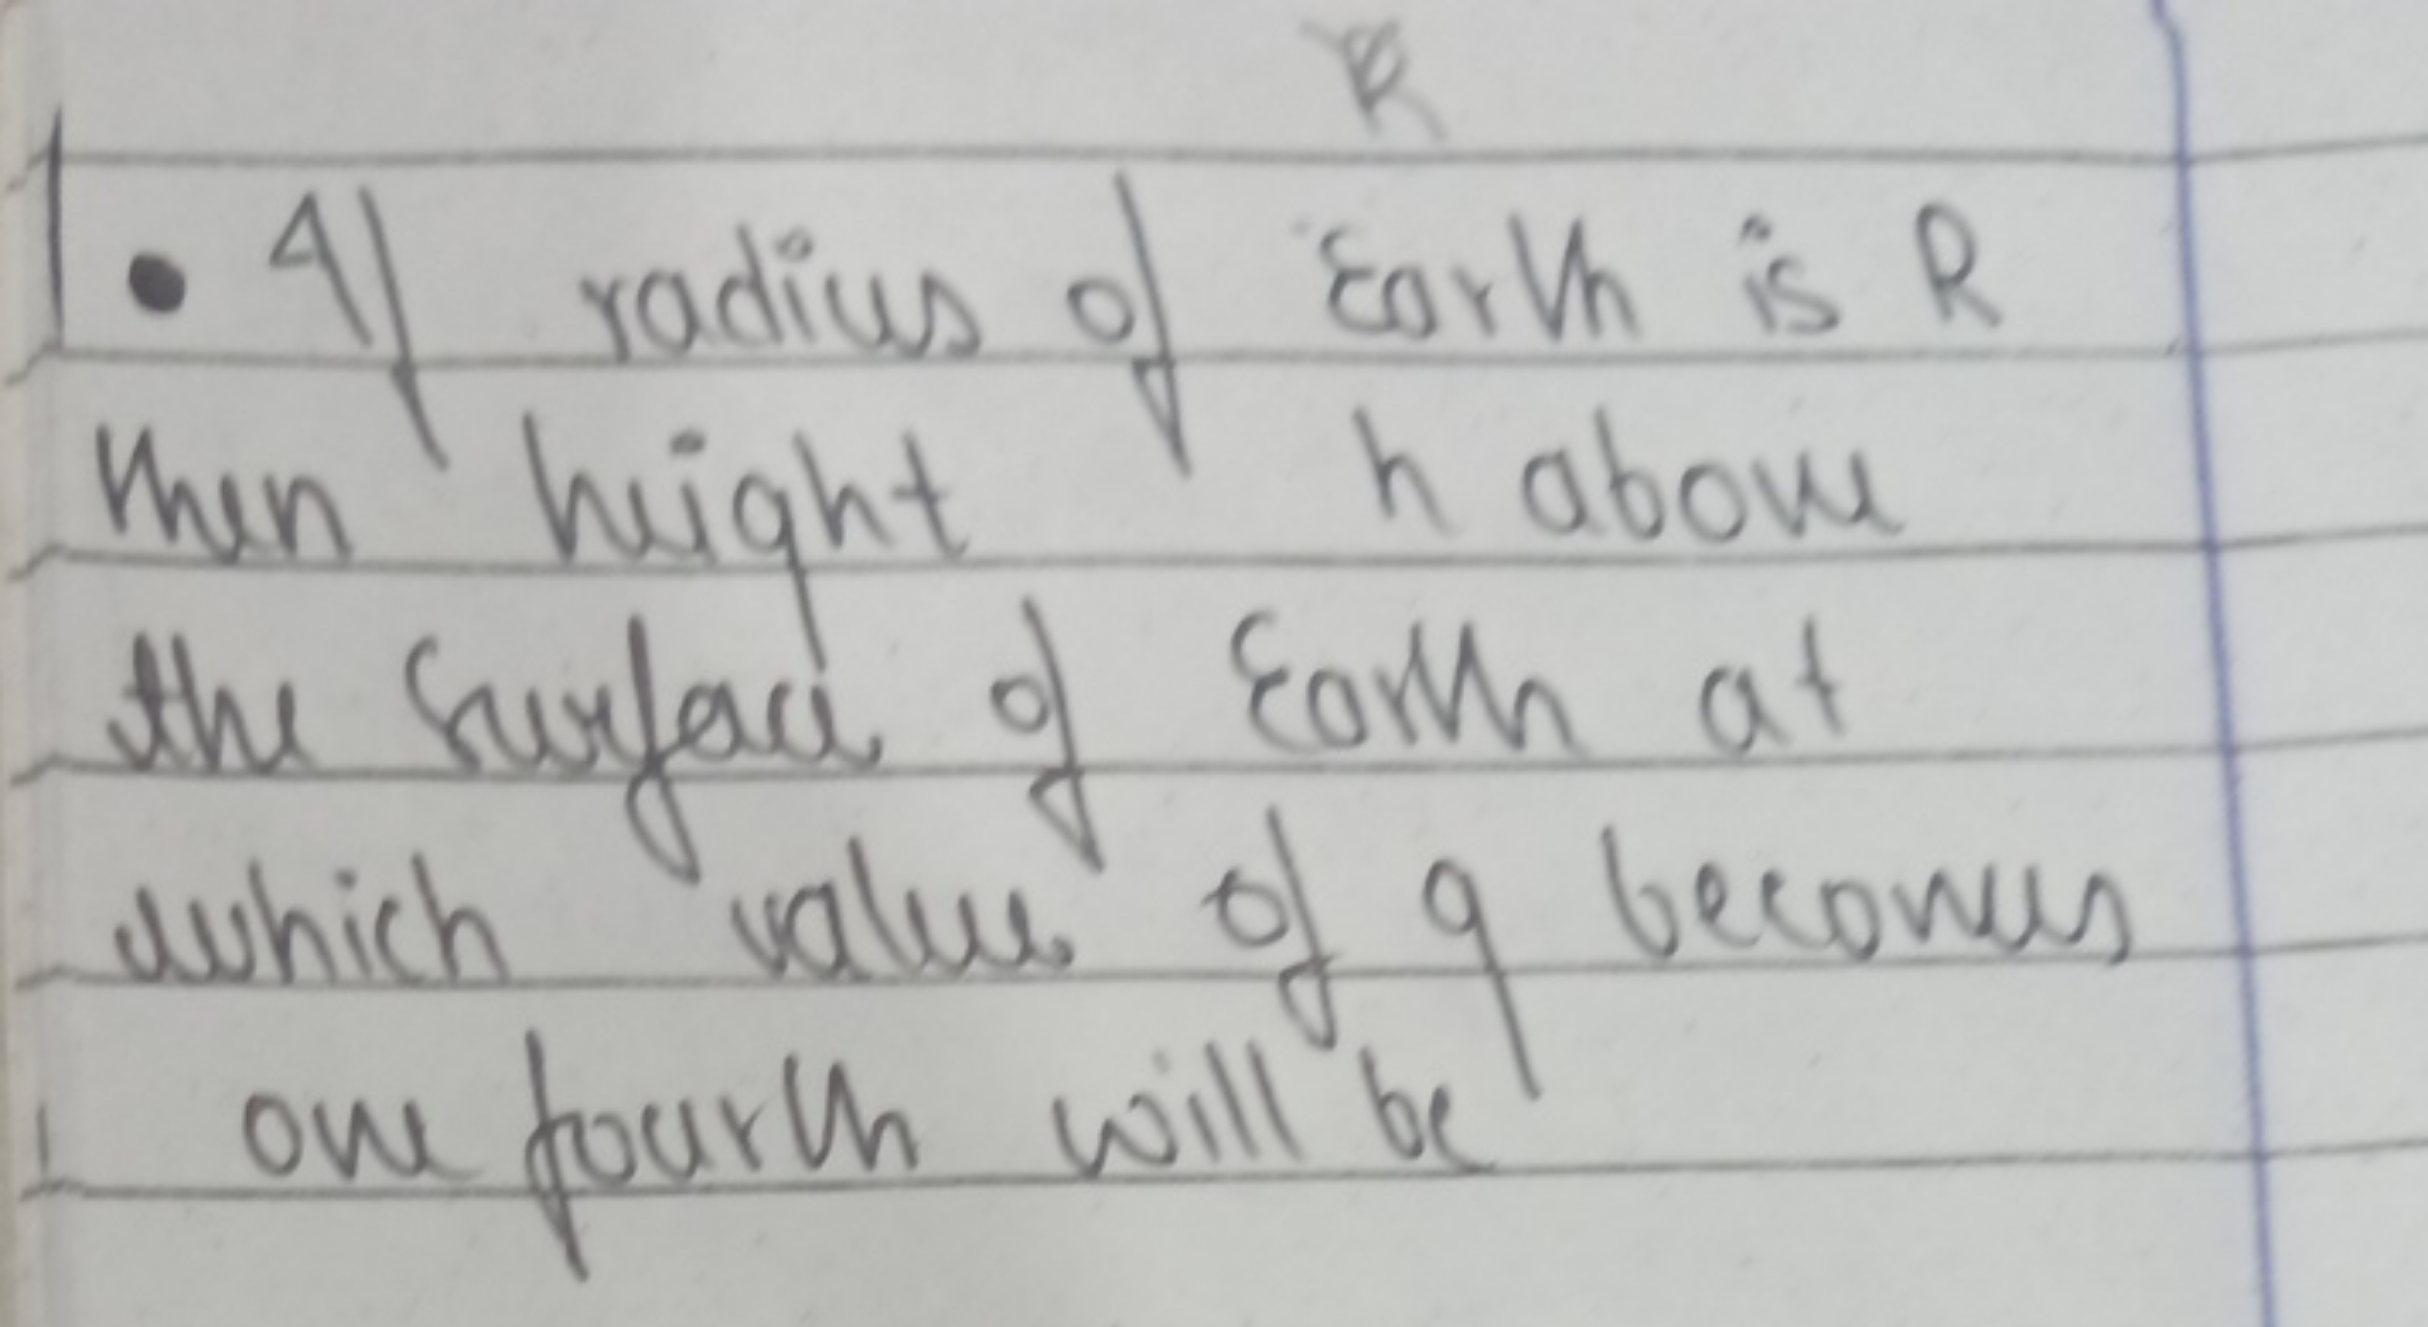 R
1. If radius of Earth is R
then height h above
the surface of Earth at
which value of g becomes
one fourth will be